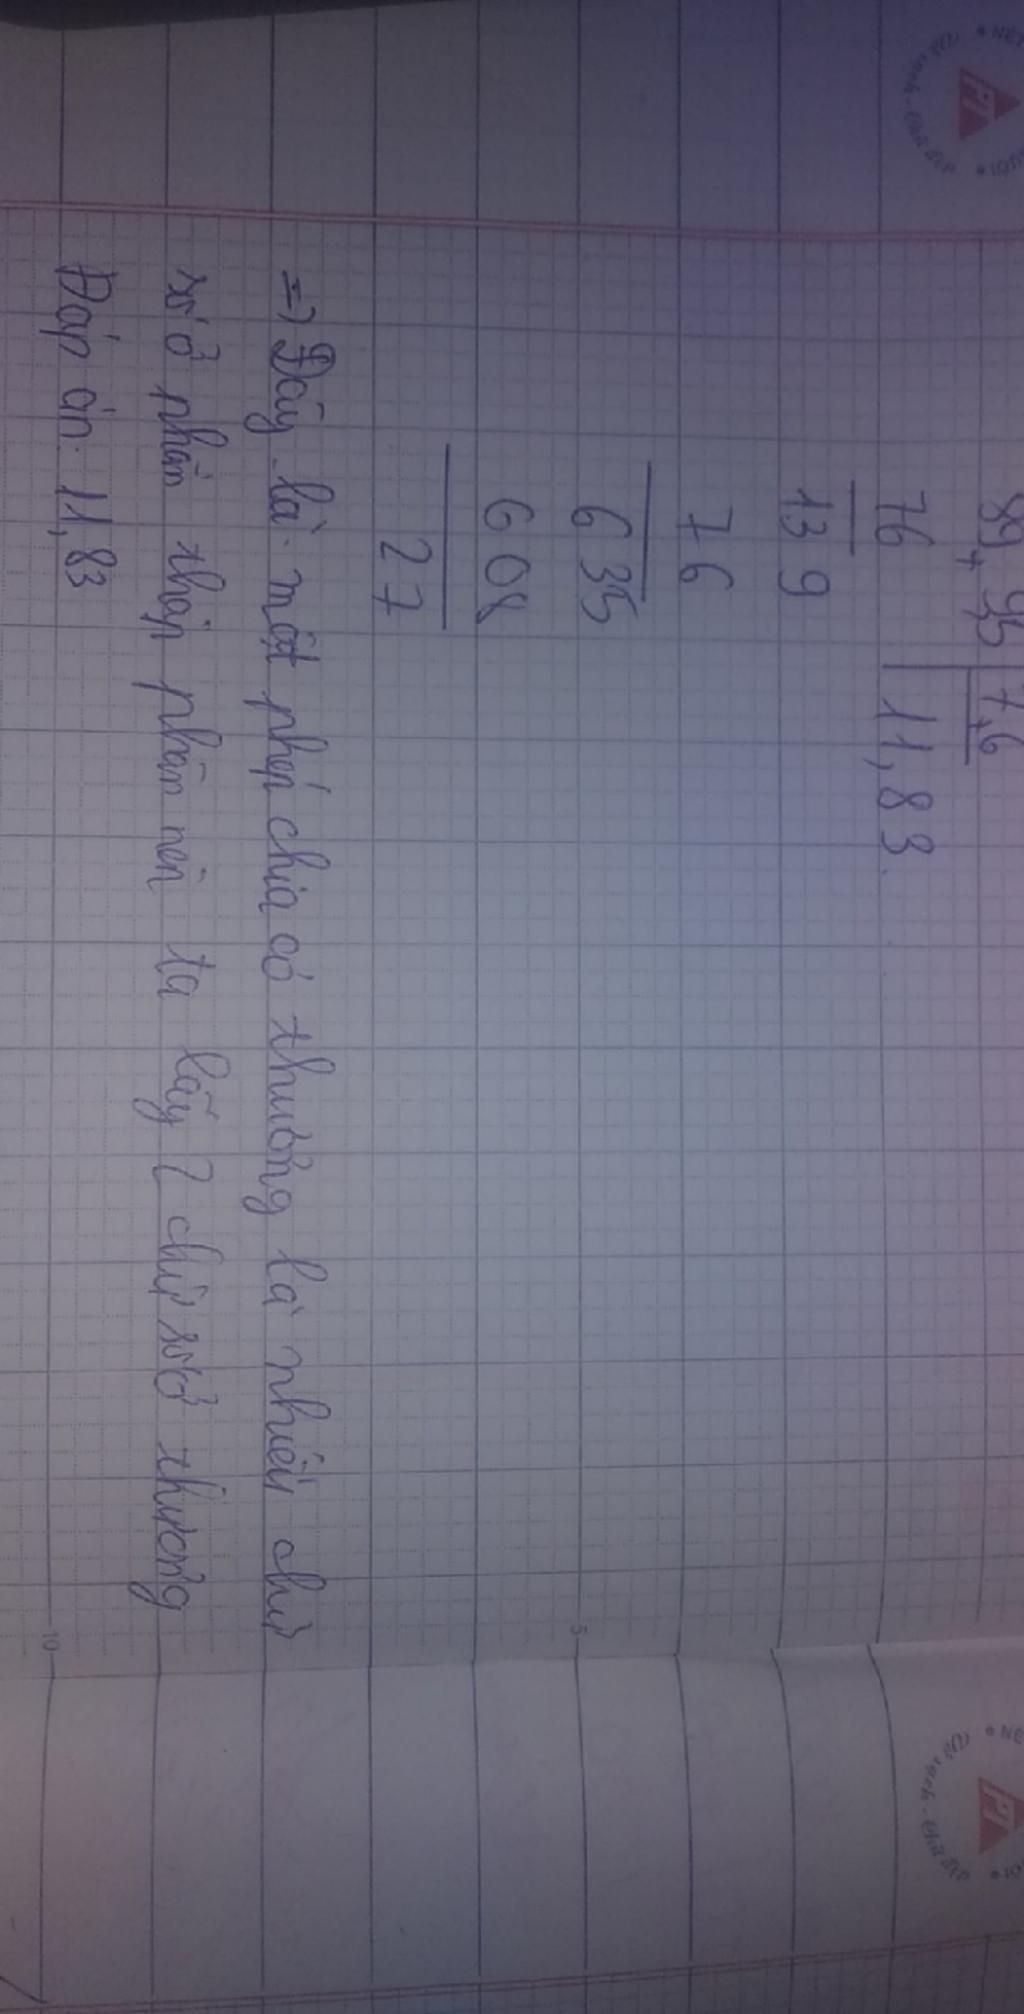 89,95 7,6
76 11,83
139
76
635
608
27
=> Đây là một phép chia có thương là nhiều chữ
số ở phần thập phân nên ta lấy 2 chữ số ở thương
Đáp án: 11,83
5
10